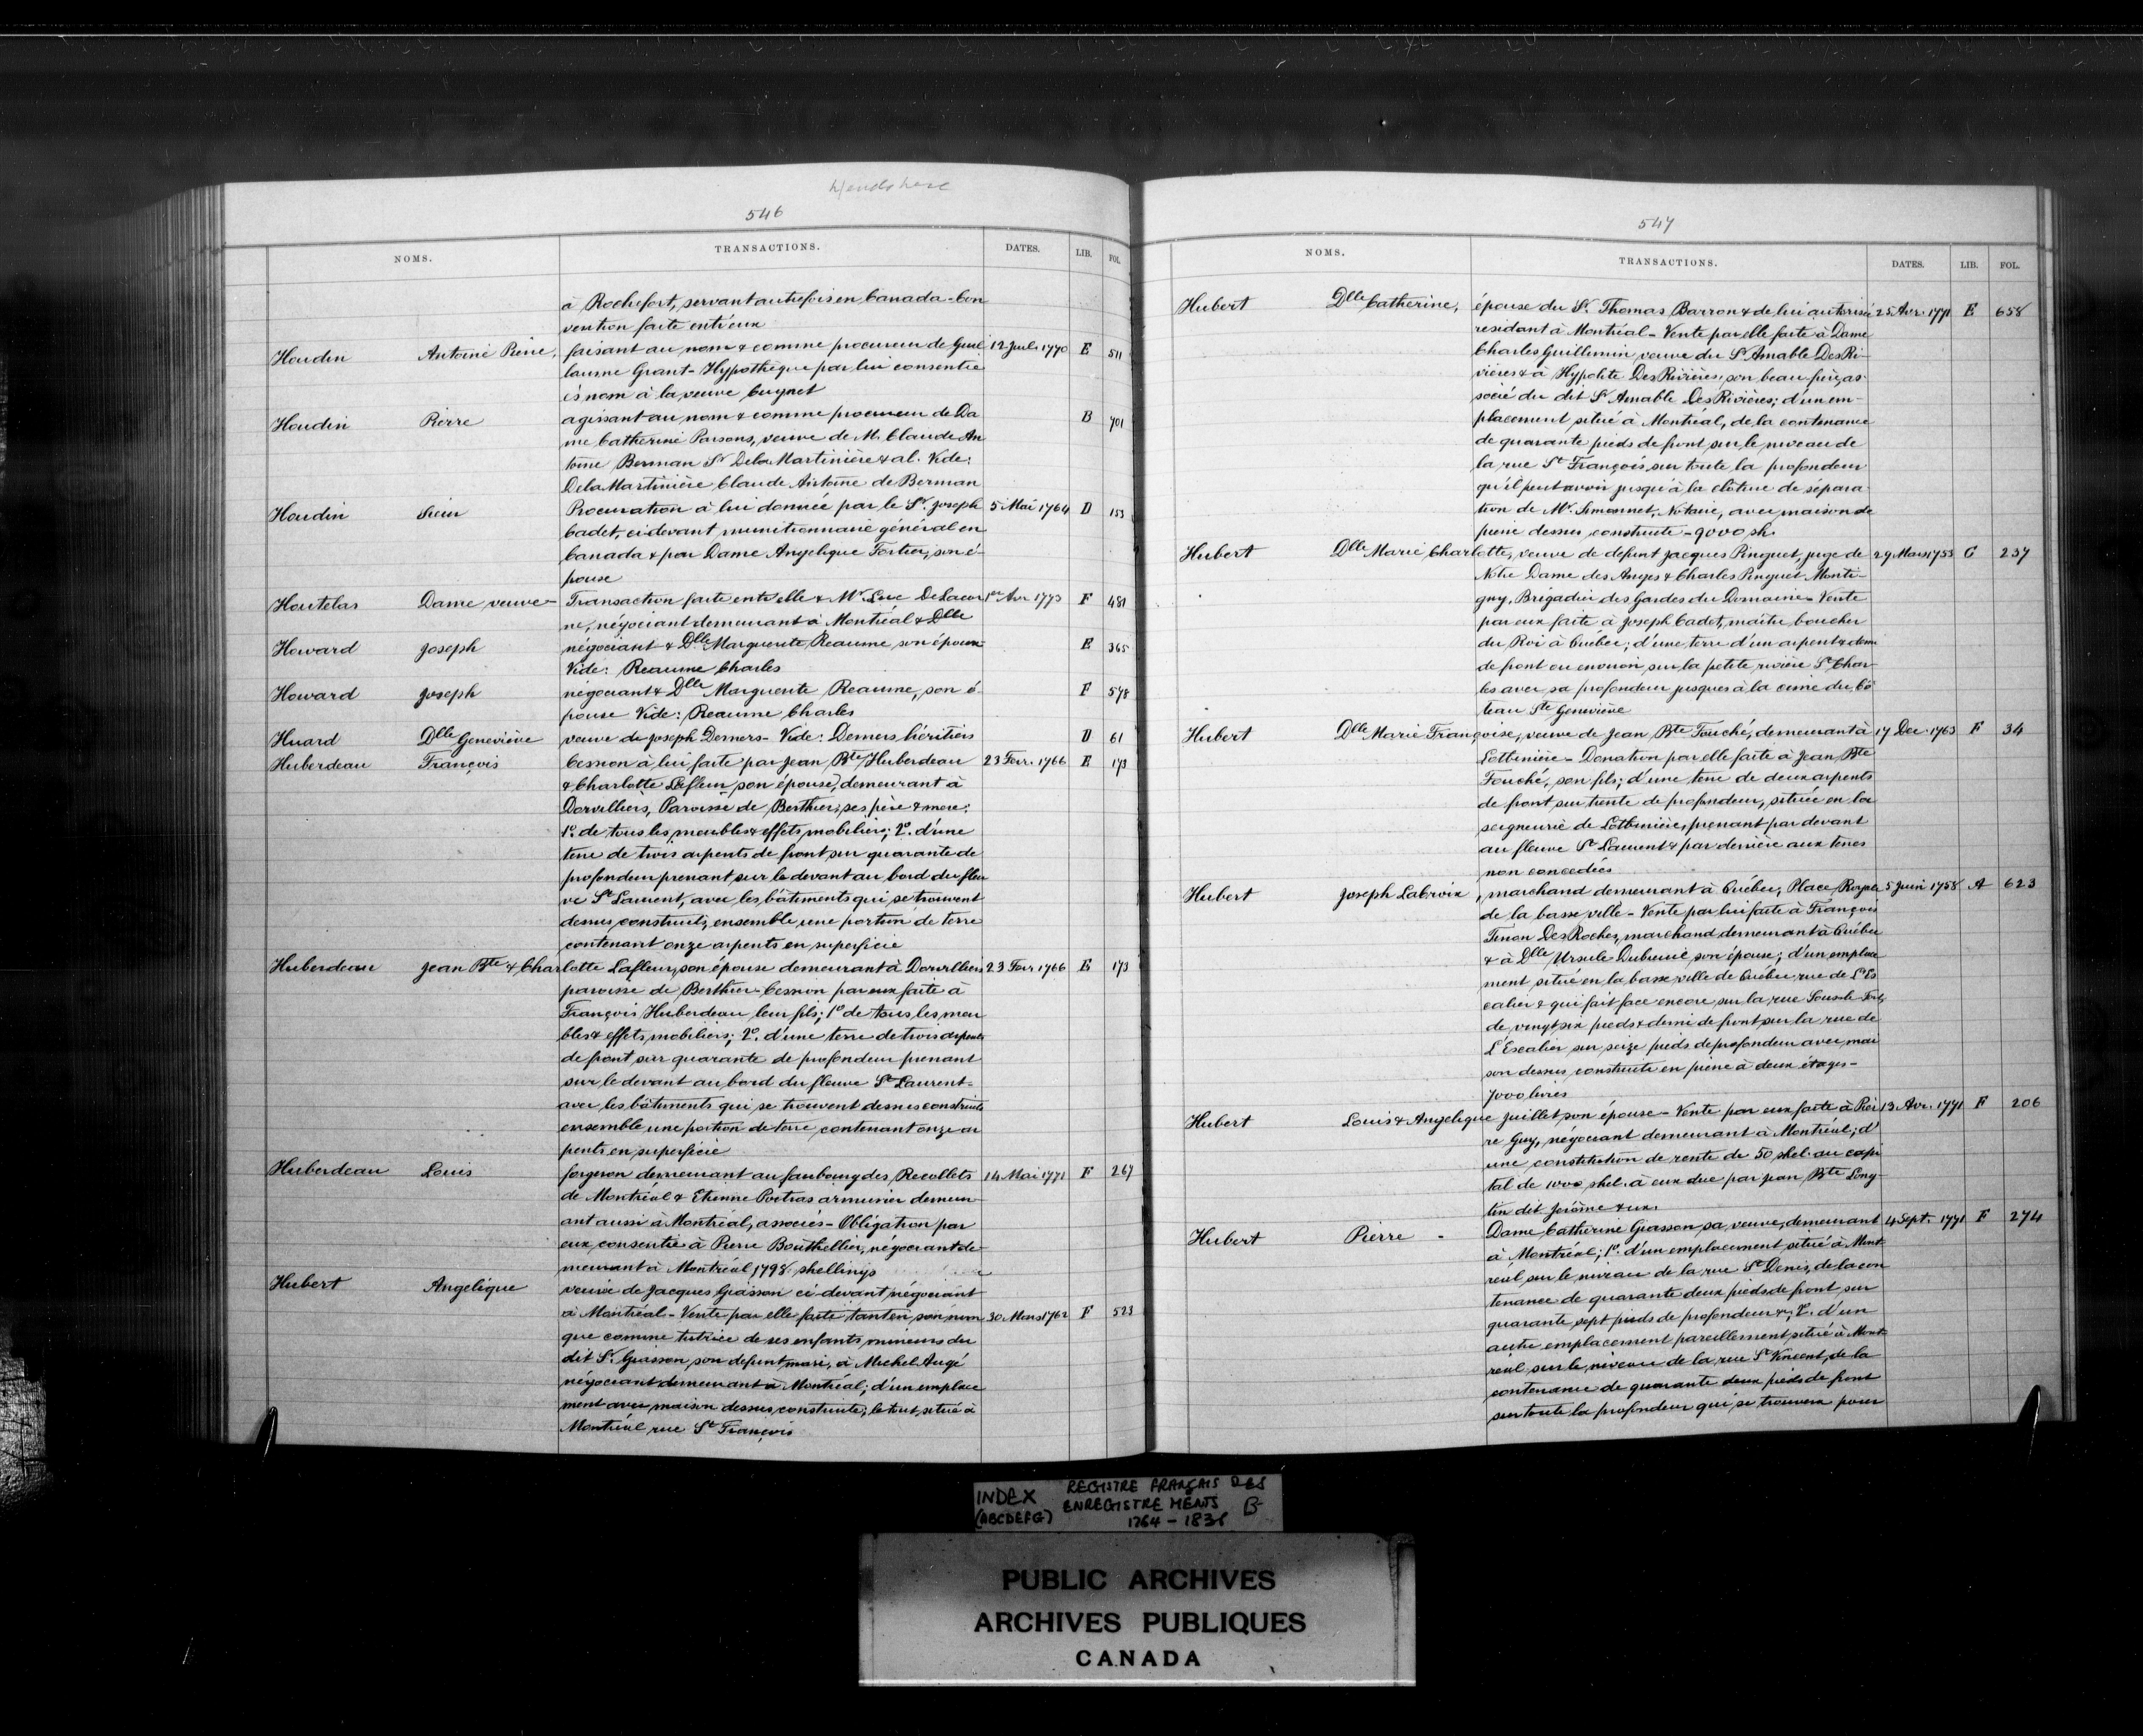 546
NOMS. TRANSACTIONS. DATES. LIB. FOL.
à Rochefort, servant autrefois en Canada - Con
vention faite entr'eux
Houdin Antoine Pierre, faisant au nom & comme procureur de Guil 12 Juil. 1770 E 511
laume Grant - Hypothèque par lui consentie
ès nom à la veuve Cugnet
Houdin Pierre agissant au nom & comme procureur de Da B 701
me Catherine Parsons, veuve de M. Claude An
toine Berman Sr DelaMartinière & al. Vide:
DelaMartinière Claude Antoine de Berman
Houdin Sieur Procuration à lui donnée par le Sr. Joseph 5 Mai 1764 D 153
Cadet, ci devant munitionnaire général en
Canada & par Dame Angelique Fortier, son é-
pouse
Houtelas Dame veuve - Transaction faite entr'elle & Mr Luc DeLacor 1er Avr 1773 F 481
ne, négociant demeurant à Montréal & Dlle
Howard Joseph négociant & Dlle Marguerite Reaume son épouse E 365
Vide: Reaume Charles
Howard Joseph négociant & Dlle Marguerite Reaume, son é F 578
pouse Vide: Reaume Charles
Huard Dlle Geneviève veuve de Joseph Demers - Vide: Demers héritiers D 61
Huberdeau François Cession à lui faite par Jean Bte Huberdeau 23 Fevr. 1766 E 173
& Charlotte Lafleur son épouse, demeurant à
Dorvilliers, Paroisse de Berthier, ses père & mère:
1o. de tous les meubles & effets mobiliers; 2o. d'une
terre de trois arpents de front sur quarante de
profondeur prenant sur le devant au bord du fleu
ve St Laurent, avec les bâtiments qui se trouvent
dessus construits, ensemble une portion de terre
contenant onze arpents en superficie
Huberdeau Jean Bte & Charlotte Lafleur, son épouse demeurant à Dorvilliers 23 Fevr. 1766 E 173
paroisse de Berthier - Cession par eux faite à
François Huberdeau leur fils; 1o de tous les meu
bles & effets mobiliers; 2o. d'une terre de trois arpents
de front sur quarante de profondeur prenant
sur le devant au bord du fleuve St Laurent -
avec les bâtiments qui se trouvent dessus construits
ensemble une portion de terre contenant onze ar
pents en superficie
Huberdeau Louis forgeron demeurant au faubourg des Recollets 14 Mai 1771 F 267
de Montréal & Etienne Poitras armurier demeur
ant aussi à Montréal, associés - Obligation par
eux consentie à Pierre Bouthellier, négociant de-
meurant à Montréal 1798 shellings
Hubert Angelique veuve de Jacques Giasson ci-devant négociant
à Montréal - Vente par elle faite tant en son nom 30 Mars 1762 F 523
que comme tutrice de ses enfants mineurs du
dit Sr. Giasson, son defunt mari, à Michel Augé
négociant demeurant à Montréal; d'un emplace
ment avec maison dessus construite; le tout situé à
Montréal rue St François
547
NOMS. TRANSACTIONS. DATES. LIB. FOL.
Hubert Dlle Catherine, épouse du Sr. Thomas Barron & de lui autorisé 25 Avr. 1771 E 658
residant à Montréal - Vente par elle faite à Dame
Charles Guillemin veuve du Sr Amable DesRi-
vières & à Hypolite DesRivières, son beau frère, as-
socié du dit Sr Amable DesRivières; d'un em-
placement situé à Montréal, de la contenance
de quarante pieds de front sur le niveau de
la rue St François, sur toute la profondeur
qu'il peut avoir jusqu'à la clôture de sépara-
tion de Mr. Simonnet, Notaire, avec maison de
pierre dessus construite - 9000 sh.
Hubert Dlle Marie Charlotte, veuve de defunt Jacques Pinguet, juge de 29 Mars 1753 C 237
Notre Dame des Anges & Charles Pinguet Monti-
gny, Brigadier des Gardes du Domaine - Vente
par eux faite à Joseph Cadet, maître boucher
du Roi à Québec; d'une terre d'un arpent & demi
de front ou environ, sur la petite rivière St Char-
les avec sa profondeur jusques à la cime du Cô
teau Ste Geneviève
Hubert Dlle Marie Françoise, veuve de Jean Bte Fouché, demeurant à 17 Dec. 1763 F 34
Lotbinière - Donation par elle faite à Jean Bte
Fouché, son fils; d'une terre de deux arpents
de front sur trente de profondeur, située en la
seigneurie de Lotbinière, prenant par devant
au fleuve St Laurent & par derrière aux terres
non concedées
Hubert Joseph Labroix, marchand demeurant à Québec, Place Royale 5 Juin 1758 A 623
de la basse ville - Vente par lui faite à François
Tinon DesRoches, marchand demeurant à Québec
& à Dlle Ursule Dubreuil son épouse; d'un emplace
ment situé en la basse ville de Québec rue de L'Es
calier & qui fait face encore sur la rue Sous-le-Fort,
de vingt six pieds & demi de front sur la rue de
L'Escalier sur seize pieds de profondeur avec mai
son dessus construite en pierre à deux étages -
7000 livres
Hubert Louis & Angelique Juillet son épouse - Vente par eux faite à Pier 13 Avr. 1771 F 206
re Guy, négociant demeurant à Montréal; d'
une constitution de rente de 50 shel. au capi
tal de 1000 shel. à eux due par Jean Bte Long-
tin dit Jérôme & ux.
Hubert Pierre - Dame Catherine Giasson sa veuve, demeurant 4 Sept. 1771 F 274
à Montréal; 1o. d'un emplacement situé à Mont
réal sur le niveau de la rue St Denis, de la con
tenance de quarante deux pieds de front, sur
quarante sept pieds de profondeur &; 2o. d'un
autre emplacement pareillement situé à Mont-
réal sur le niveau de la rue St Vincent, de la
contenance de quarante deux pieds de front
sur toute la profondeur qui se trouvera pour
INDEX (ABCDEFG) REGISTRE FRANÇAIS DES
ENREGISTREMENTS B
1764 - 1838
PUBLIC ARCHIVES
ARCHIVES PUBLIQUES
CANADA